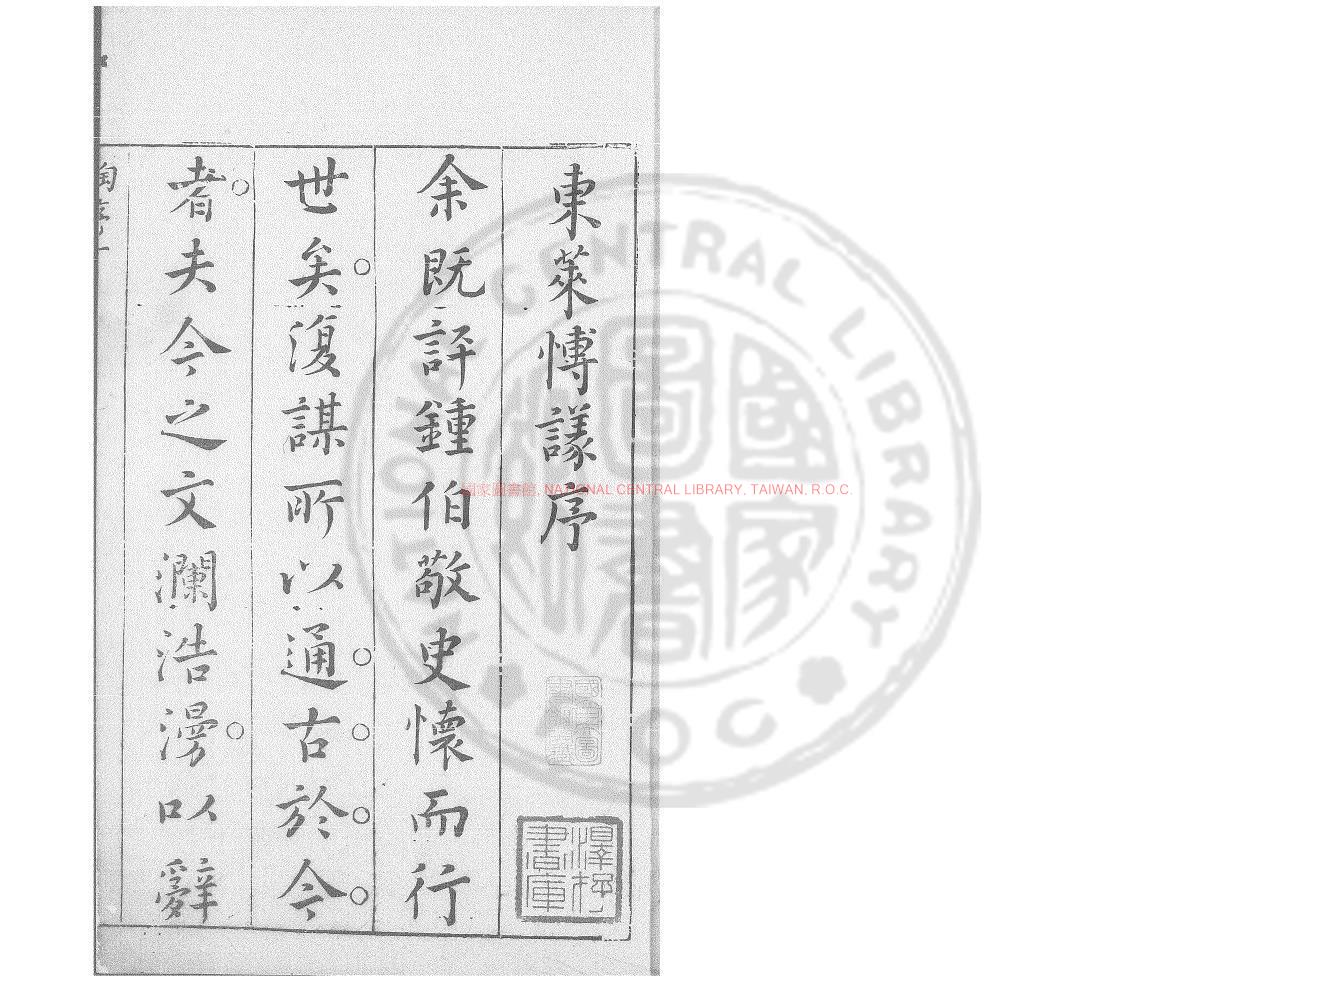 東萊博議序
余既評鍾伯敬史懷而行
世矣。復謀所以通。古。於。今。
者。夫今之文瀾浩漫。以辭
澤存書庫
國家圖書館, NATIONAL CENTRAL LIBRARY, TAIWAN, R.O.C.
NATIONAL CENTRAL LIBRARY
ROC
國家圖書